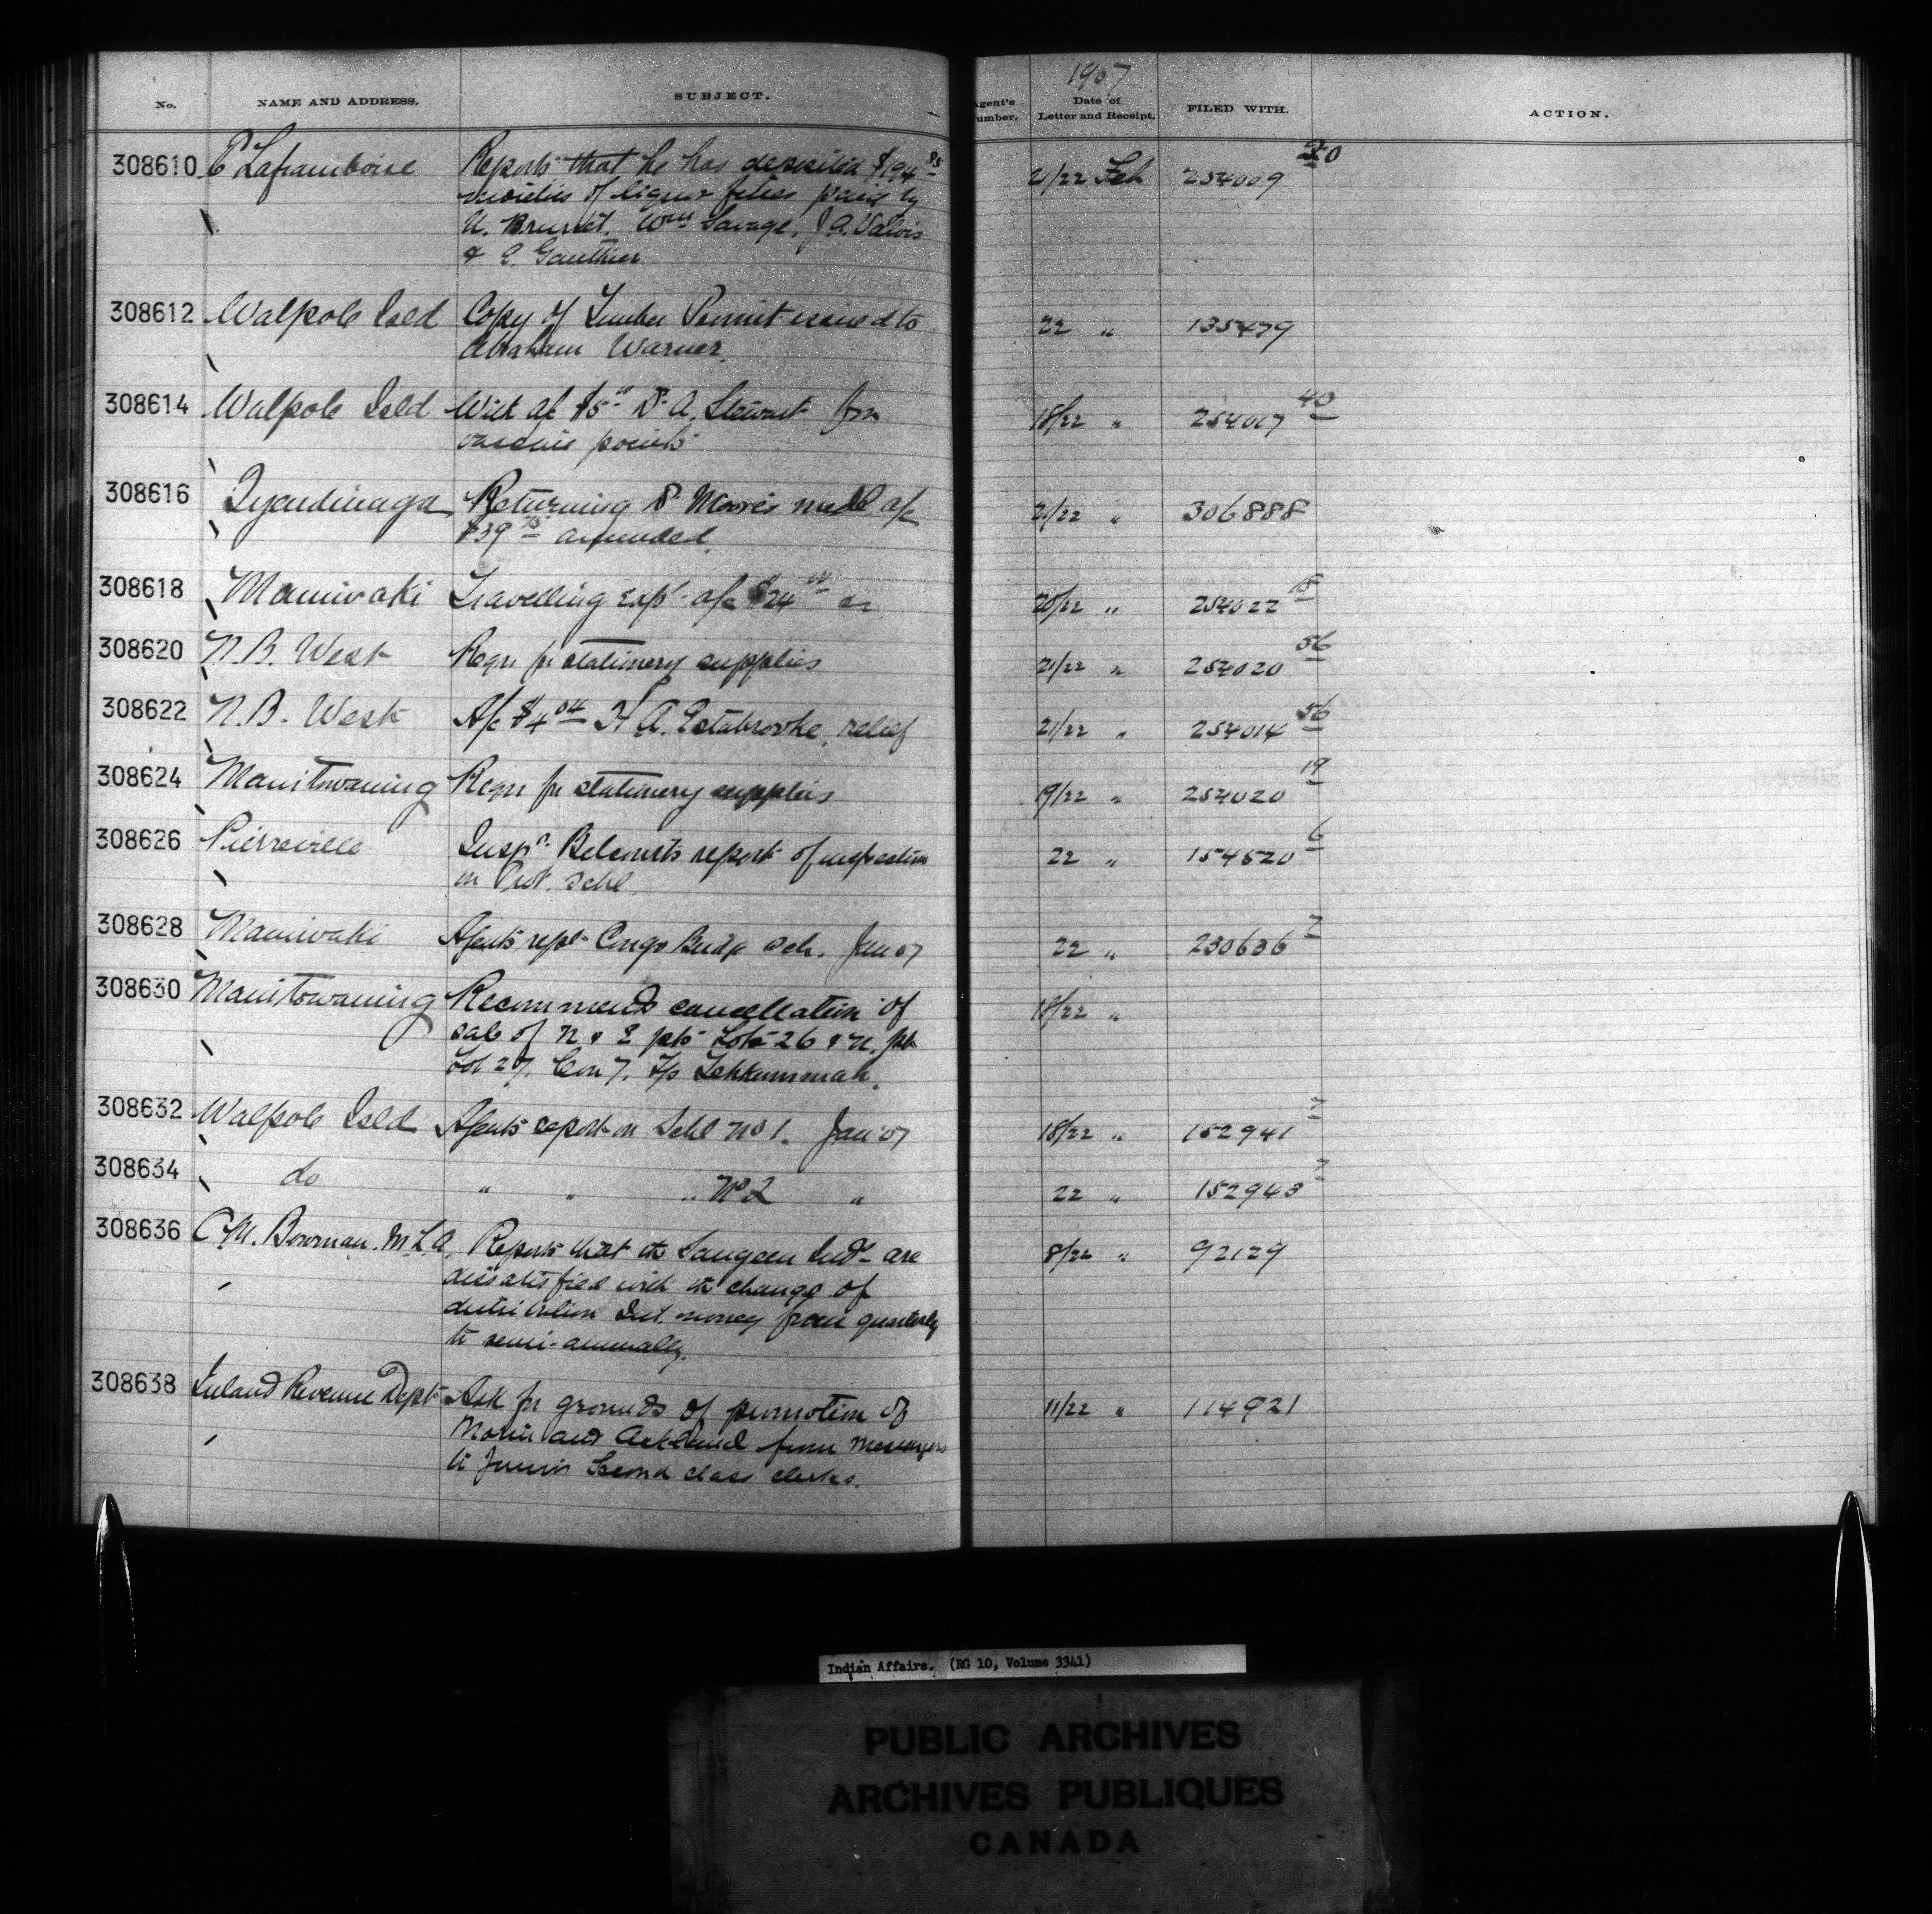 1907
No. NAME AND ADDRESS. SUBJECT. Agent's Number. Date of Letter and Receipt. FILED WITH. ACTION.
308610 C Laframboise Reports that he has deposited $194.85 21/22 Feb 254009 20
moieties of liquor fines paid by
U. Brunet. Wm Savage, J.A. Valois
& E. Gauthier
308612 Walpole Isld Copy of Timber Permit issued to 22 " 135479
Abraham Warner.
308614 Walpole Isld With a/c $5.00 D. A. Stewart for 18/22 " 254017 40
various points
308616 Tyendinaga Returning D. Moore's medl a/c 21/22 " 306888
$39.75 amended.
308618 Maniwaki Travelling exp. a/c $24.00 20/22 " 254022 18
308620 N.B. West Reqn for stationery supplies 21/22 " 254020 56
308622 N.B. West A/c $4.04 H A. Estabrooke, relief 21/22 " 254014 56
308624 Manitowaning Reqn for stationery supplies 19/22 " 254020 19
308626 Pierreville Inspr. Belcourt's report of inspection 22 " 154520 6
on Prot. Schl.
308628 Maniwaki Agent's rept Congo Bridge Sch. Jan 07 22 " 230636 7
308630 Manitowaning Recommends cancellation of 18/22 "
sale of N & E pts Lots 26 & N. pt
Lot 27, Con 7, Tp Tehkummah.
308632 Walpole Isld Agent's report on Schl No 1. Jan '07 18/22 " 152941 7
308634 do " " " No 2 " 22 " 152943 7
308636 C.M. Bowman. M.L.A. Reports that the Saugeen Inds are 8/22 " 92129
dissatisfied with the change of
distribution Int. money from quarterly
to semi-annually.
308638 Inland Revenue Dept Ask for grounds of promotion of 11/22 " 114921
Morin and Ackland from Messengers
to Junior Second class clerks.
Indian Affairs. (RG 10, Volume 3341)
PUBLIC ARCHIVES
ARCHIVES PUBLIQUES
CANADA